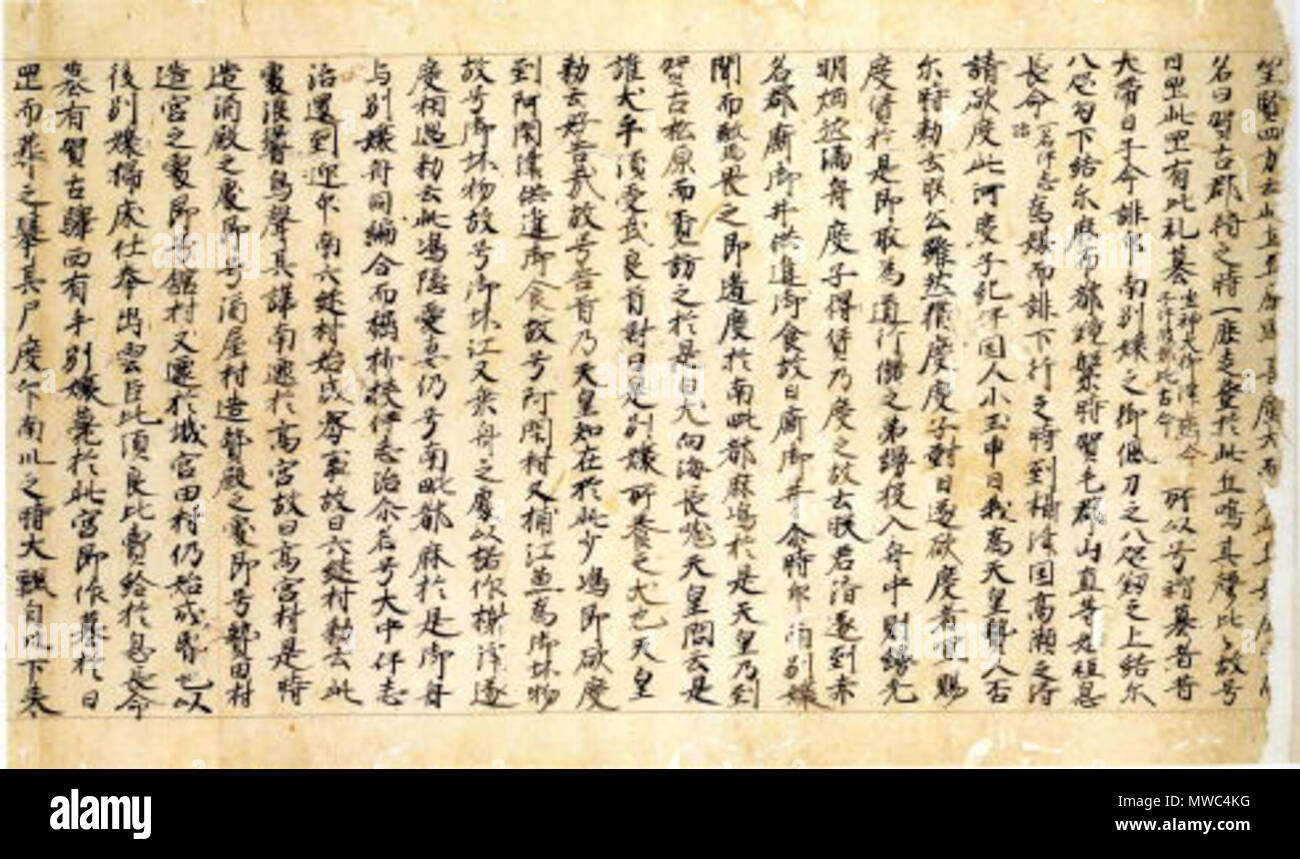 望覧四方云此土丘原野甚廣大而見此丘
名曰賀古郡狩之時一鹿走登於此丘鳴其聲比々故号
日罡此罡有比礼墓坐神大御津歯命子伊波都比古命所以号褶墓者昔
大帯日子命誂印南別嬢之時御佩刀之八咫剱之上結尓
八咫勾下結尓麻布都鏡繋時賀毛郡山直等始祖息
長命一名伊志治為媒而誂下行之時到摂津国高瀬之済
請欲度此河度子紀伊国人小玉申曰我為天皇贄人否
尓時勅云朕公雖然猶度度子對曰遂欲度者宜賜
度賃於是即取為道行儲之弟縵投入舟中則縵光
明炳然満舟度子得賃乃度之故云朕君済遂到赤
石郡廝御井供進御食故曰廝御井尓時印南別嬢
聞而驚畏之即遁度於南毗都麻嶋於是天皇乃到
賀古松原而覓訪之於是白犬向海長吠天皇問云是
誰犬乎須受武良首對曰是別嬢所養之犬也天皇
勅云好告哉故号告首乃天皇知在於此少嶋即欲度
到阿閇津供進御食故号阿閇村又捕江魚為御坏物
故号御坏物故号御坏江又乗舟之處以楉作榭津遂
度相遇勅云此嶋隠愛妻仍号南毗都麻於是御舟
与別嬢舟同編合而度挟抄伊志治尓名号大中伊志
治還到印南六継村始成密事故曰六継村勅云此
處浪響鳥聲甚譁南遷於高宮故曰高宮村是時
造酒殿之處即号酒屋村造贄殿之處即号贄田村
造宮之處即号舘村又遷於城宮田村仍始成昏也以
後別嬢掃床仕奉出雲臣比須良比賣給於息長命
墓有賀古驛西有年別嬢薨於此宮即作墓於日
罡而葬之擧其尸度印南川之時大飄自川下来